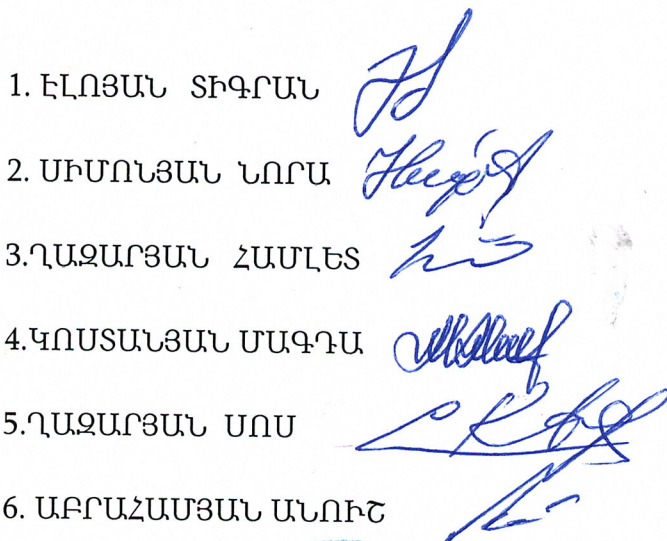 1. ԷԼՈՅԱՆ ՏԻԳՐԱՆ
2. ՍԻՄՈՆՅԱՆ ՆՈՐԱ
3.ՂԱԶԱՐՅԱՆ ՀԱՄԼԵՏ
4.ԿՈՍՏԱՆՅԱՆ ՄԱԳԴԱ
5.ՂԱԶԱՐՅԱՆ ՍՈՍ
6. ԱԲՐԱՀԱՄՅԱՆ ԱՆՈՒՇ